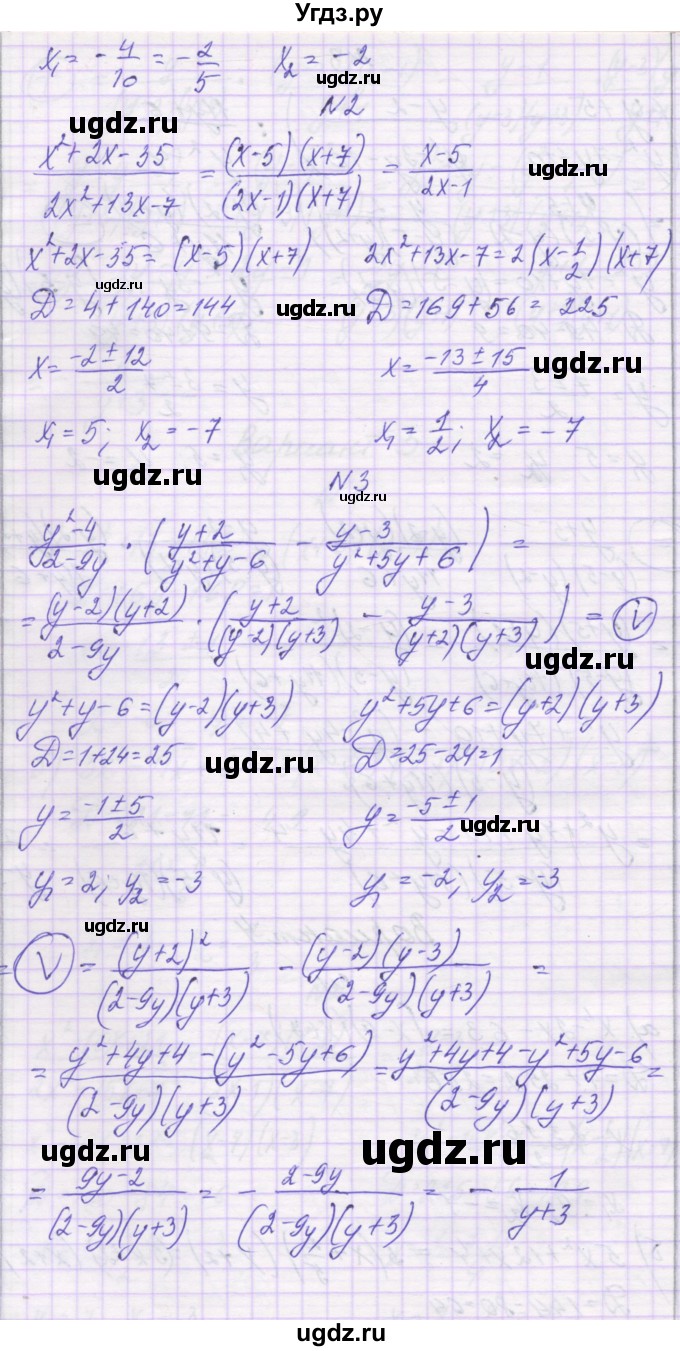 Угдз.ру
x₁ = -4/10 = -2/5   x₂ = -2
ugdz.ru
N2
ugdz.ru
(x²+2x-35)/(2x²+13x-7) = ((x-5)(x+7))/((2x-1)(x+7)) = (x-5)/(2x-1)
ugdz.ru
x²+2x-35 = (x-5)(x+7)   2x²+13x-7 = 2(x-1/2)(x+7)
ugdz.ru
Д = 4+140 = 144   Д = 169+56 = 225
ugdz.ru
x = (-2±12)/2   x = (-13±15)/4
ugdz.ru
x₁ = 5; x₂ = -7   x₁ = 1/2; x₂ = -7
ugdz.ru
N3
(y²-4)/(2-9y) · ((y+2)/(y²+y-6) - (y-3)/(y²+5y+6)) =
= ((y-2)(y+2))/(2-9y) · ((y+2)/((y-2)(y+3)) - (y-3)/((y+2)(y+3))) = V
ugdz.ru
y²+y-6 = (y-2)(y+3)   y²+5y+6 = (y+2)(y+3)
Д = 1+24 = 25   Д = 25-24 = 1
ugdz.ru
y = (-1±5)/2   y = (-5±1)/2
ugdz.ru
y₁ = 2; y₂ = -3   y₁ = -2; y₂ = -3
ugdz.ru
= V = (y+2)²/((2-9y)(y+3)) - ((y-2)(y-3))/((2-9y)(y+3)) =
= (y²+4y+4-(y²-5y+6))/((2-9y)(y+3)) = (y²+4y+4-y²+5y-6)/((2-9y)(y+3)) =
ugdz.ru
ugdz.ru
= (9y-2)/((2-9y)(y+3)) = - (2-9y)/((2-9y)(y+3)) = - 1/(y+3)
ugdz.ru
ugdz.ru